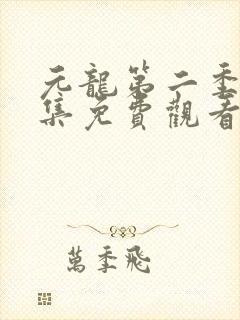 元龍第二季
集免費觀看
萬季飛